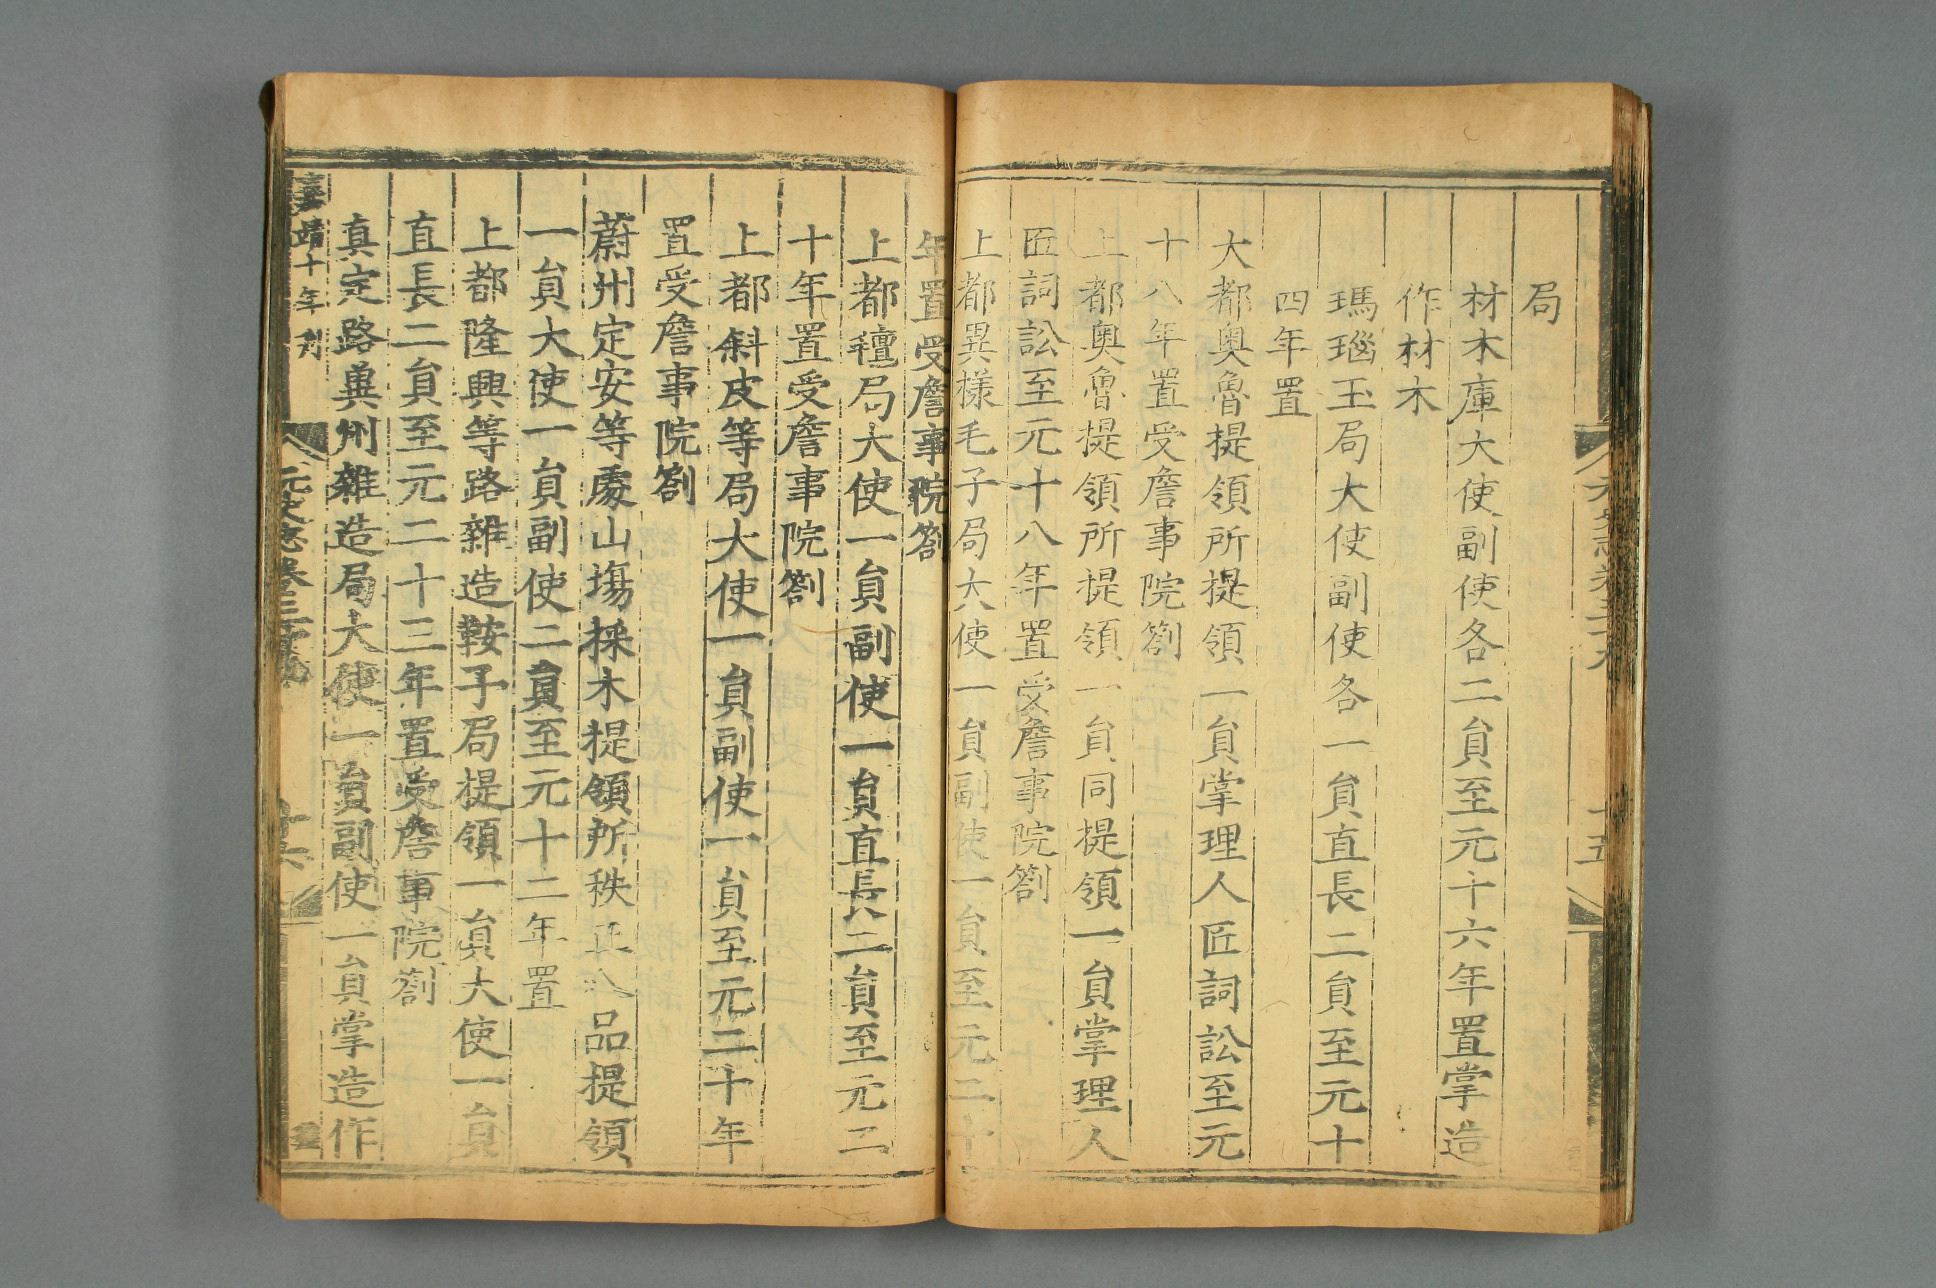 局
材木庫大使副使各二貟至元十六年置掌造
作材木
瑪瑙玉局大使副使各一貟直長二貟至元十
四年置
大都奧魯提領所提領一貟掌理人匠詞訟至元
十八年置受詹事院劄
上都奧魯提領所提領一貟同提領一貟掌理人
匠詞訟至元十八年置受詹事院劄
上都異樣毛子局大使一貟副使一貟至元二十
年置受詹事院劄
上都氊局大使一貟副使一貟直長二貟至元二
十年置受詹事院劄
上都斜皮等局大使一貟副使一貟至元二十年
置受詹事院劄
蔚州定安等處山場採木提領所秩正八品提領
一貟大使一貟副使二貟至元十二年置
上都隆興等路雜造鞍子局提領一貟大使一貟
直長二貟至元二十三年置受詹事院劄
真定路兾州雜造局大使一貟副使一貟掌造作
靖十年刋
元史志卷三十九
十六